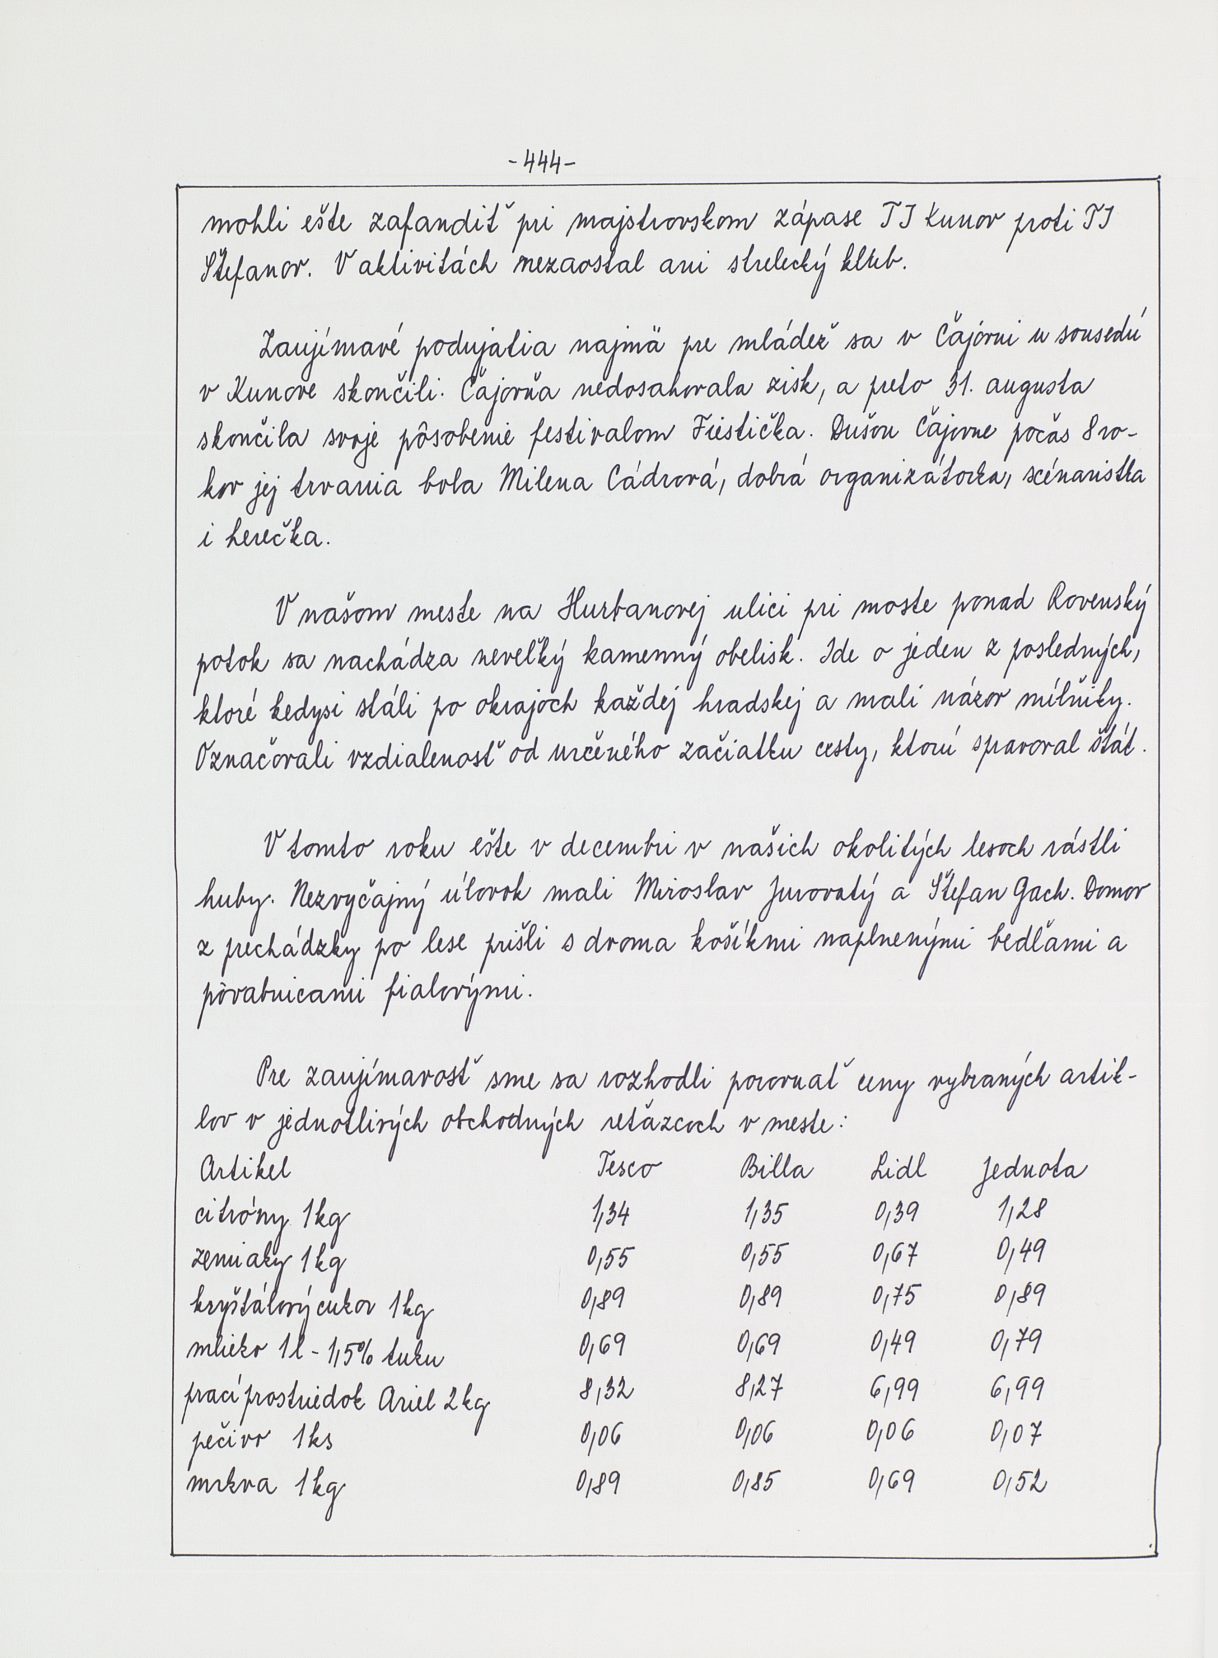 -444-
mohli ešte zafandiť pri majstrovskom zápase TJ Kunov proti TJ
Štefanov. V aktivitách nezaostal ani strelecký klub.
Zaujímavé podujatia najmä pre mládež sa v Čajovni u sousedú
v Kunove skončili. Čajovňa nedosahovala zisk, a preto 31. augusta
skončila svoje pôsobenie festivalom Fiestička. Dušou Čajovne počas 8 ro-
kov jej trvania bola Milena Cádrová, dobrá organizátorka, scénaristka
i herečka.
V našom meste na Hurbanovej ulici pri moste ponad Rovenský
potok sa nachádza neveľký kamenný obelisk. Ide o jeden z posledných,
ktoré kedysi stáli po okrajoch každej hradskej a mali názov míľniky.
Označovali vzdialenosť od určeného začiatku cesty, ktorú spravoval štát.
V tomto roku ešte v decembri v našich okolitých lesoch rástli
huby. Nezvyčajný úlovok mali Miroslav Jurovatý a Štefan Gach. Domov
z prechádzky po lese prišli s dvoma košíkmi naplnenými bedľami a
pôvabnicami fialovými.
Pre zaujímavosť sme sa rozhodli porovnať ceny vybraných artik-
lov v jednotlivých obchodných reťazcoch v meste:
Artikel Tesco Billa Lidl Jednota
citróny 1kg 1,34 1,35 0,39 1,28
zemiaky 1kg 0,55 0,55 0,67 0,49
kryštálový cukor 1kg 0,89 0,89 0,75 0,89
mlieko 1l - 1,5% tuku 0,69 0,69 0,49 0,79
prací prostriedok Ariel 2kg 8,32 8,27 6,99 6,99
pečivo 1ks 0,06 0,06 0,06 0,07
mrkva 1kg 0,89 0,85 0,69 0,52